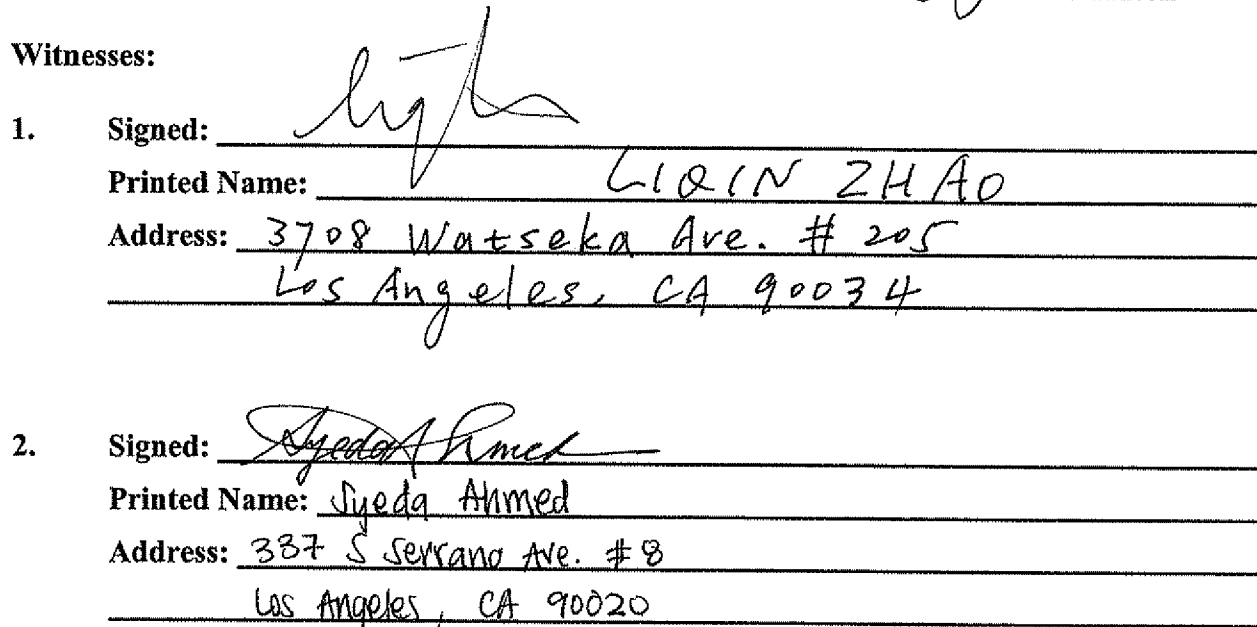 Witnesses:
1. Signed:
Printed Name: LIQIN ZHAO
Address: 3708 Watseka Ave. # 205
Los Angeles, CA 90034
2. Signed: Syeda Ahmed
Printed Name: Syeda Ahmed
Address: 337 S Serrano Ave. #8
Los Angeles, CA 90020